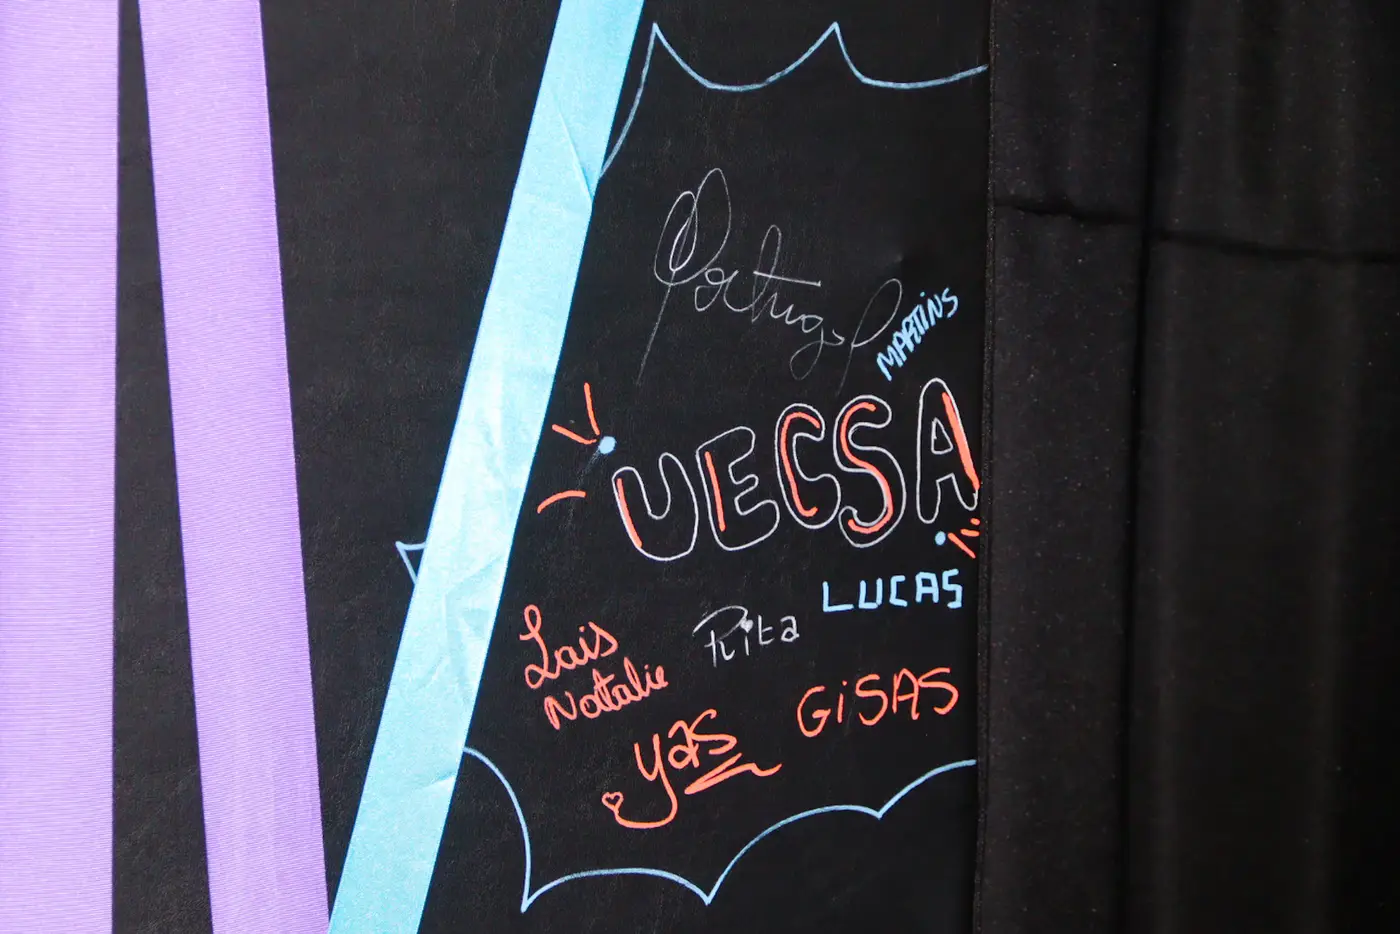 Portugal
MARTINS
UECSA
LUCAS
Rita
Lais
Natalie
GiSAS
yas